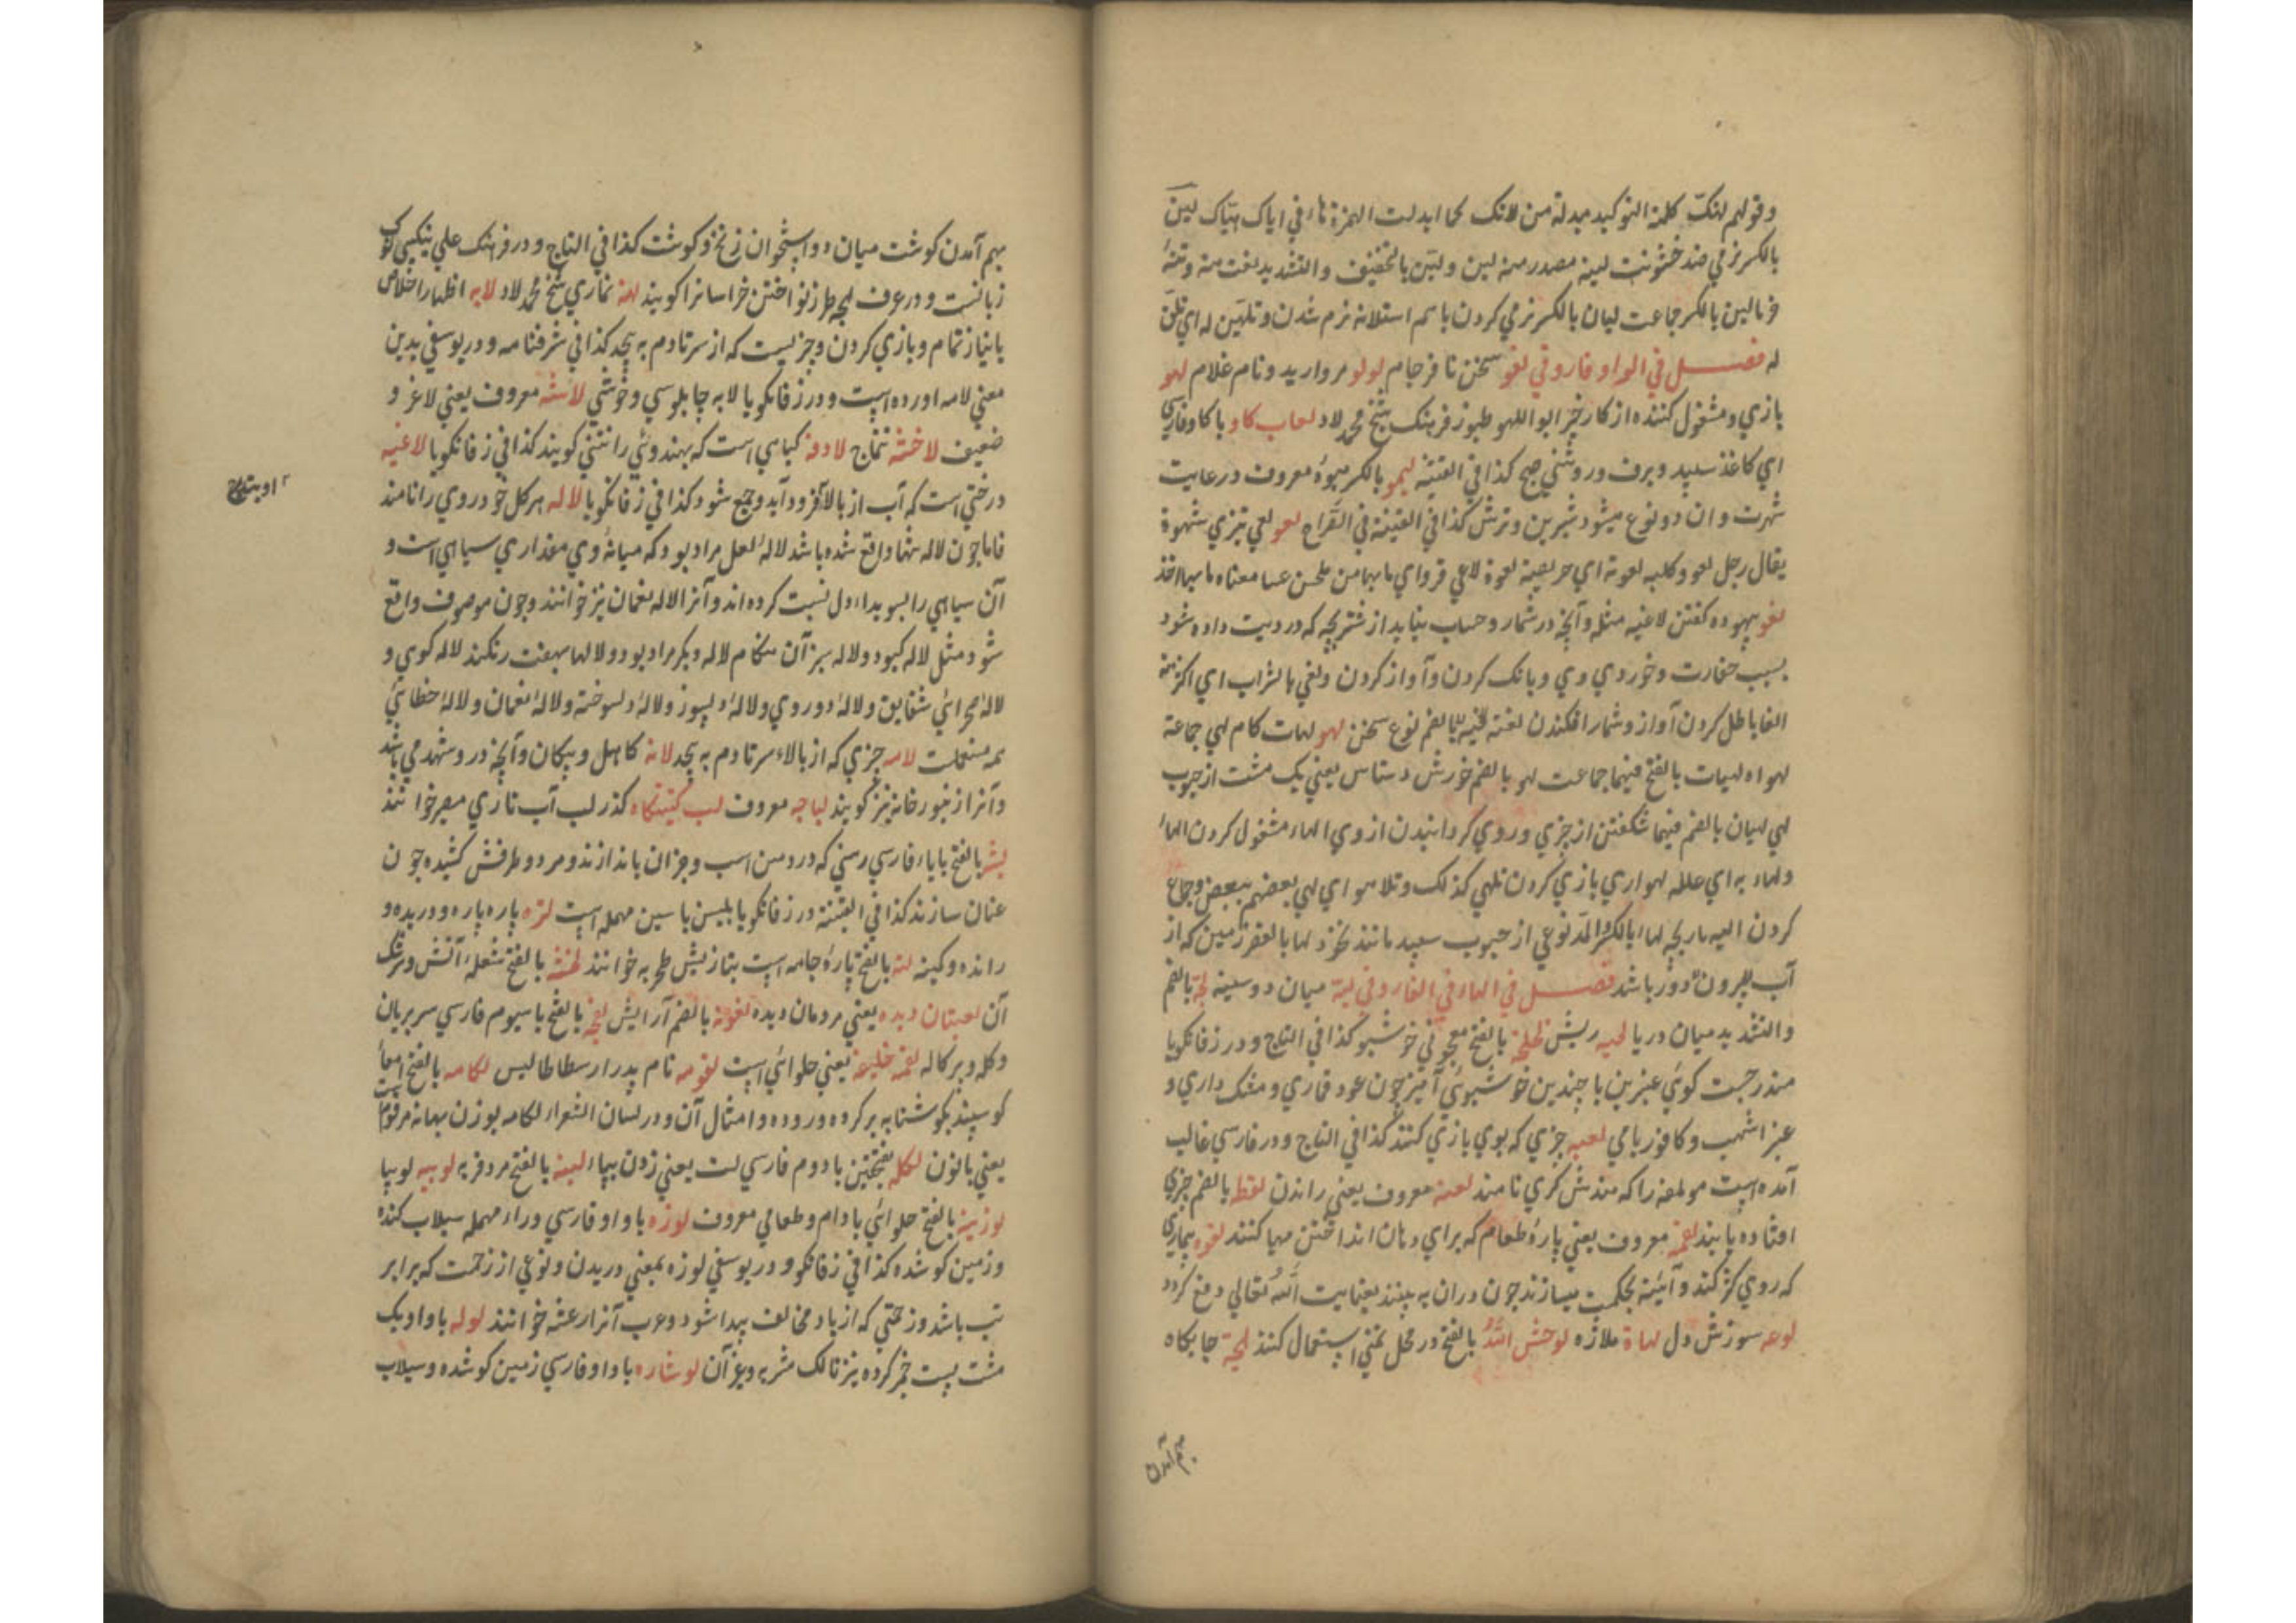 وقولهم لهنک کلمة التوکید مبدلة من لانک کما ابدلت الهمزة هاء في ایاک هیاک لین
بالکسر نرمي ضد خشونت لینه مصدر منه لین ولین بالتخفیف والتشدید نعت منه
بالکسر جماعت لیان بالکسر نرمي کردن با هم استلانه نرم شدن وتلین له اي تملق
له فصل في الواو فارو في لغو سخن نافرجام لولو مروارید ونام غلام لهو
بازي ومشغول کننده از کار خیر ابو اللهو طنبور فرهنک شیخ محمد لاد لعاب کاو با کاو فارسي
اي کاغذ سپید وبرف وروشني صبح کذا في القنیة لیمو بالکسر میوهٔ معروف در غایت
شهرت وان دو نوع میشود شیرین وترش کذا في القنیة في القراح لعو لعي تیزي شهوة
یقال رجل لعو وکلبه لعوة اي حریصة لعوة لاعي قرو اي ما بها من
لغو بیهوده کفتن لاغیه مثله وآنچه در شمار وحساب نیاید از شتر بچه که در دیت داده شود
بسبب حقارت وخوردي وي وبانک کردن وآواز کردن ولغي بالشراب اي اکثر منه
الغا باطل کردن آواز وشمار افکندن لغته بالضم نوع سخن لهو لهات کام لهي جماعة
لهوات لهیات بالفتح فیهما جماعت لهو بالضم خورش دستاس یعني یک مشت از حبوب
لهي لهیان بالضم فیهما شکفتن از چیزي وروي کردانیدن از وي الهاء مشغول کردن الهاء
ولهاء به اي علله لهو اري بازي کردن تلهي کذلک وتلاهوا اي لهي بعضهم ببعض وجماع
کردن لیاء بالکسر والمد نوعي از حبوب سپید مانند نخود لیا بالقصر زمین که از
آب بیرون دور باشد فصل في الهاء في الفارو في لبة میان دو سینه لجة بالضم
والتشدید میان دریا لحیه ریش لخلخه بالفتح معجوني خوشبو کذا في التاج ودر زفانکویا
مندرجست کوئي عنبرین با چندین خوشبوئي آمیز چون عود قماري ومشک داري و
عنبر اشهب وکافور یا مي لعبه چیزي که بوي بازي کنند کذا في التاج ودر فارسي غالب
آمده است مر لعبه را که مندش کري نامند لعنه معروف یعني راندن لقطه بالضم چیزي
افتاده یابند لقمه معروف یعني پارهٔ طعام که براي دهان انداختن مهیا کنند لقوه بیماري
که روي کژ کند وآئینهٔ بحکمت میسازند چون دران به بینند بعنایت الله تعالي دفع کردد
لوعه سوزش دل لهاة ملازه لوحش الله بالفتح در محل تمني استعمال کنند لحیة جایکاه
بهم آمدن
بهم آمدن کوشت میان دو استخوان زنخ وکوشت کذا في التاج ودر فرهنک علي نیکبی
زبانست ودر عرف لهجه طرز نواختن خراسانرا کویند لهنه نهاري شیخ محمد لاد لابه اظهار اخلاص
با نیاز تمام وبازي کردن وچیزیست که از سر تا دم به پیچد کذا في شرفنامه ودر یوسفي بدین
معني لامه اورده است ودر زفانکویا لابه چابلوسي وخوشي لاشه معروف یعني لاغر و
ضعیف لاخشه تتماج لادنه کیاهي است که بهندوئي را نتني کویند کذا في زفانکویا لاغیه
درختي است که آب از بالا فرود آید وجمع شود کذا في زفانکویا لاله هر کل خودروي را نامند
فاما چون لاله تنها واقع شده باشد لالهٔ لعل مراد بود که میانهٔ وي مقداري سیاهي است و
آن سیاهي را بسویداء دل نسبت کرده اند وآنرا لاله نعمان نیز خوانند وچون موصوف واقع
شود مثل لاله کبود ولاله سبز آن هنکام لاله دیکر مراد بود ولالها بهفت رنکند لاله کوي و
لالهٔ صحرائي شقایق ولالهٔ دوروي ولالهٔ دلسوز ولالهٔ دلسوخته ولالهٔ نعمان ولالهٔ خطائي
همه مستعملست لامه چیزي که از بالاء سر تا دم به پیچد لانه کاهل وبیکان وآنچه درو شهد مي باشد
وآنرا زنبور خانه نیز کویند لباچه معروف لب کشتکاه کذر لب آب تازي معبر خوانند
لبشه بالفتح باباء فارسي رسني که در دهن اسب وخران باندازند وهر دو طرفش کشیده چون
عنان سازند کذا في القنیة ودر زفانکویا بلبس با سین مهمله است لتره پاره پاره ودریده و
رانده وکینه لته بالفتح پارهٔ جامه است بتازیش طحربه خوانند لخشه بالفتح شعلهٔ آتش وسرشک
آن لعبتان دیده یعني مردمان دیده لغونه بالضم آرایش لفچه بالفتح با سیوم فارسي سر بریان
وکله وپرکاله لقمه خلیفه یعني حلوائي است لقومه نام پدر ارسطاطالیس لکامه بالفتح امعاء
کوسپند بکوشتابه پر کرده ورودها وامثال آن ودر لسان الشعراء لکامه بوزن بهانه مرقوم است
یعني با نون لکله بفتحتین با دوم فارسي لت یعني زدن بپاء لنبه بالفتح مرد فربه لوبیه لوبیا
لوزینه بالفتح حلوائي بادام وطعامي معروف لوره با واو فارسي وراء مهمله سیلاب کنده
وزمین کوشده کذا في زفانکو ودر یوسفي لوزه بمعني دریدن ونوعي از زحمت که برابر
تب باشد وزحمتي که از باد مخالف پیدا شود وعرب آنرا رعشه خوانند لوله با واو یک
مشت پست خمیر کرده نیز نالک شربه وغیر آن لوشاره با واو فارسي زمین کوشده وسیلاب